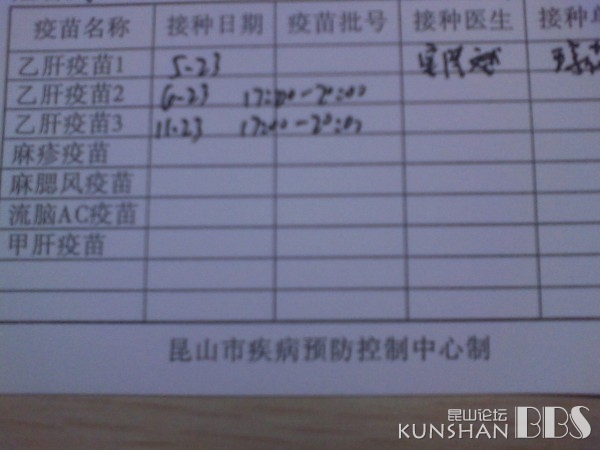 疫苗名称 接种日期 疫苗批号 接种医生 接种
乙肝疫苗1 5.23
乙肝疫苗2 6.23 17:00-20:00
乙肝疫苗3 11.23 17:00-20:00
麻疹疫苗
麻腮风疫苗
流脑AC疫苗
甲肝疫苗
昆山市疾病预防控制中心制
昆山论坛
KUNSHAN BBS